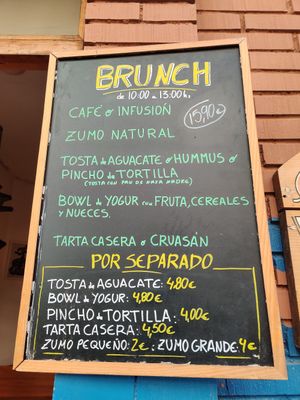 BRUNCH
de 10:00 a 13:00h.
CAFÉ o INFUSIÓN
15,90€
ZUMO NATURAL
TOSTA de AGUACATE o HUMMUS o
PINCHO de TORTILLA
(TOSTA CON PAN DE MASA MADRE)
BOWL de YOGUR con FRUTA, CEREALES
y NUECES.
TARTA CASERA o CRUASÁN
POR SEPARADO
TOSTA de AGUACATE: 4,80€
BOWL de YOGUR: 4,80€
PINCHO de TORTILLA: 4,00€
TARTA CASERA: 4,50€
ZUMO PEQUEÑO: 2€ : ZUMO GRANDE: 4€